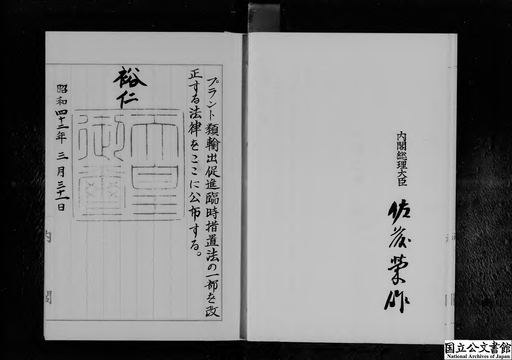 プラント類輸出促進臨時措置法の一部を改
正する法律をここに公布する。
裕仁
天皇
御璽
昭和四十二年三月三十一日
内閣総理大臣
佐藤榮作
国立公文書館
National Archives of Japan